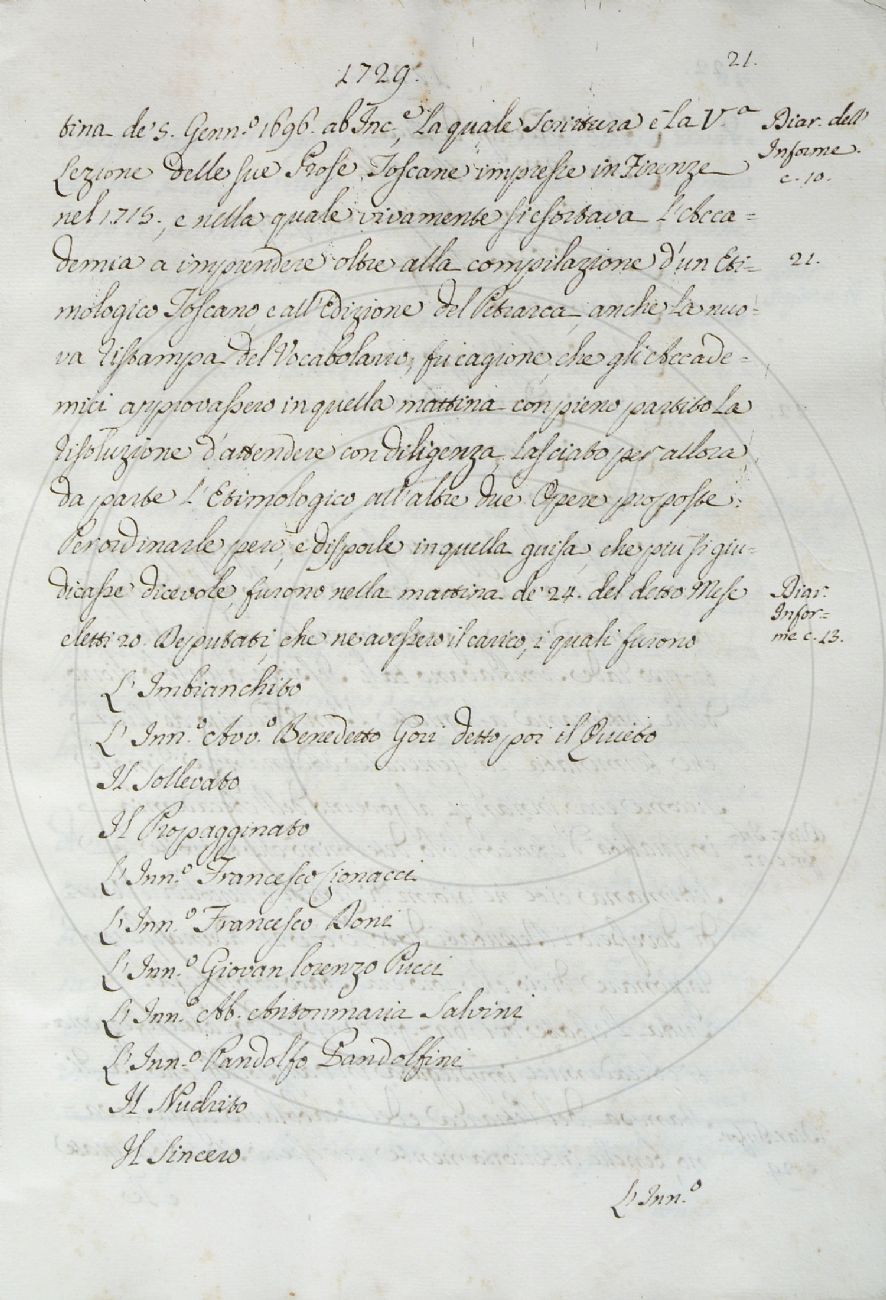 1729.
21.
tina de' 5. Genn.º 1696. ab Inc.e, la quale Scrittura è la V.a
Lezione delle sue Prose Toscane impresse in Firenze
nel 1715., e nella quale vivamente si esortava l'Acca=
demia a imprendere oltre alla compilazione d'un Eti=
mologico Toscano, e all'Edizione del Petrarca, anche la nuo=
va ristampa del Vocabolario, fu cagione, che gli Accade=
mici approvassero in quella mattina con pieno partito la
risoluzione d'attendere con diligenza, lasciato per allora
da parte l'Etimologico, all'altre due Opere proposte.
Per ordinarle però, e disporle in quella guisa, che più si giu=
dicasse dicevole, furono nella mattina de' 24. del detto Mese
eletti 20. Deputati, che ne avessero il carico, i quali furono
L'Imbianchito
L'Inn.º Avv.º Benedetto Gori detto poi il Quieto
Il Sollevato
Il Propagginato
L'Inn.º Francesco Cionacci
L'Inn.º Francesco Doni
L'Inn.º Giovan Lorenzo Pucci
L'Inn.º Ab. Antonmaria Salvini
L'Inn.º Pandolfo Pandolfini
Il Nudrito
Il Sincero
L'Inn.º
Diar. dell'
Informe
c. 10.
21.
Diar.
Infor=
me c. 13.